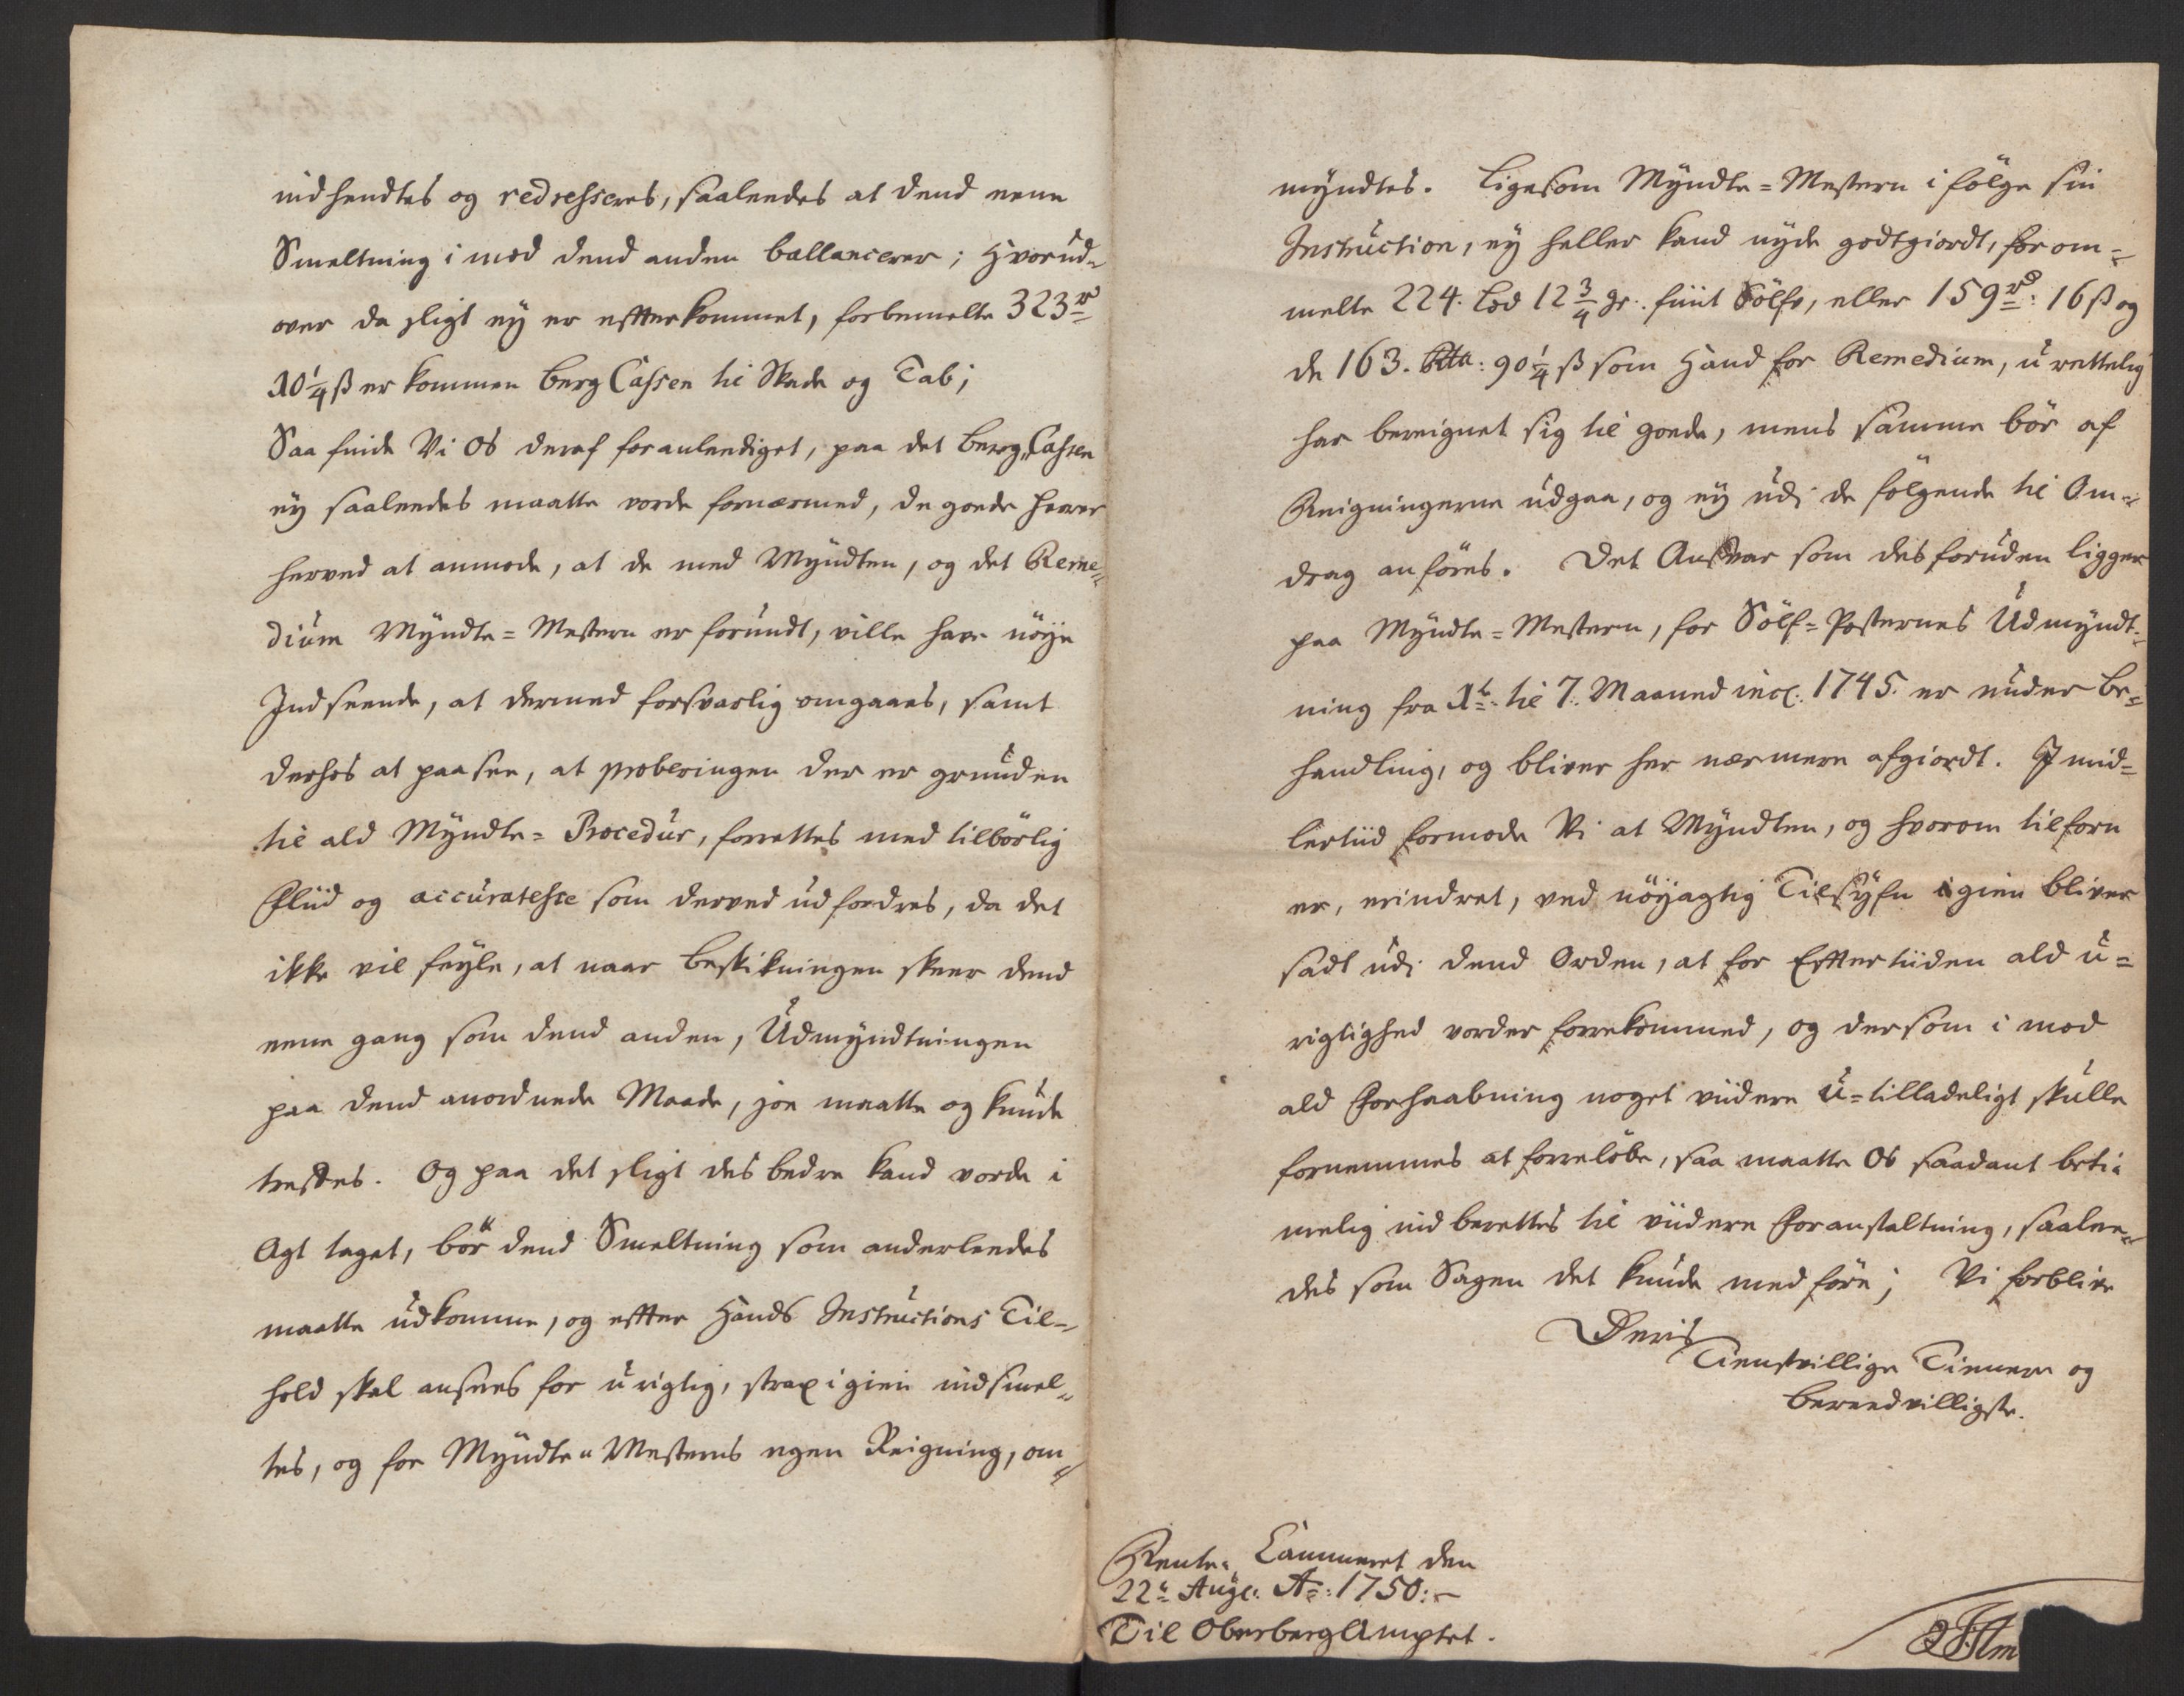 indhendtes og redresseres, saaleedes at dend eene
Smeltning i mod dend anden ballancerer; Hvorud-
over da sligt eÿ er effterkommet, forbemelte 323 rd
10¼ ß er kommen Berg Cassen til Skade og Tab;
Saa finde Vi Os deraf foranleediget, paa det Berg-Cassen
eÿ saaleedes maatte vorde fornærmed, de goede Herrer
herved at anmode, at de med Mÿndten, og det Reme-
dium Mÿndte-Mestern er forundt, ville have nöÿe
Indseende, at dermed forsvarlig omgaaes, samt
derhos at paasee, at proberingen der er grunden
til ald Mÿndte-Procedur, forrettes med tilbörlig
Fliid og accuratesse som derved udfordres, da det
ikke vil feÿle, at naar Beskikningen skeer dend
eene gang som dend anden, Udmÿndtningen
paa dend anordnede Maade, joe maatte og kunde
treffes. Og paa det sligt des bedre kand vorde i
Agt taget, bör dend Smeltning som anderleedes
maatte udkomme, og effter Hands Instructions Til-
hold skal ansees for urigtig, strax igien indsmel-
tes, og for Mÿndte-Mesterns egen Reigning, om-
mÿndtes. Ligesom Mÿndte-Mestern i fölge sin
Instruction, eÿ heller kand nÿde godtgiordt, for om-
melte 224. Lod 12¾ gr. fiint Sölfv, eller 159 rd: 16 ß og
de 163. Rdr: 90¼ ß som Hand for Remedium, urettelig
har bereignet sig til goede, mens samme bör af
Reigningerne udgaa, og eÿ udj de fölgende til Om-
drag anföres. Det Ansvar som desforuden ligger
paa Mÿndte-Mestern, for Sölf-Posternes Udmÿndt-
ning fra 1te til 7. Maaned incl: 1745. er under Be-
handling, og bliver her nærmere afgiordt. Imid-
lertiid formode Vi at Mÿndten, og hvorom tilforn
er, erindret, ved nöÿagtig Tilsÿfn igien bliver
sadt udj dend Orden, at for Efftertiiden ald u-
rigtighed vorder forrekommed, og dersom i mod
ald Forhaabning noget viidere u-tilladeligt skulle
fornemmes at forrelöbe, saa maatte Os saadant beti-
melig indberettes til viidere Foranstaltning, saalee-
des som Sagen det kunde medföre; Vi forblive
Deris
Tienstvillige Tienere og
Bereedvilligste.
Rente-Cammeret den
22de Aug: Ao: 1750:-
Til OberbergAmptet.